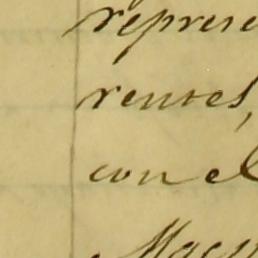 represe
rentes,
con el
Macu